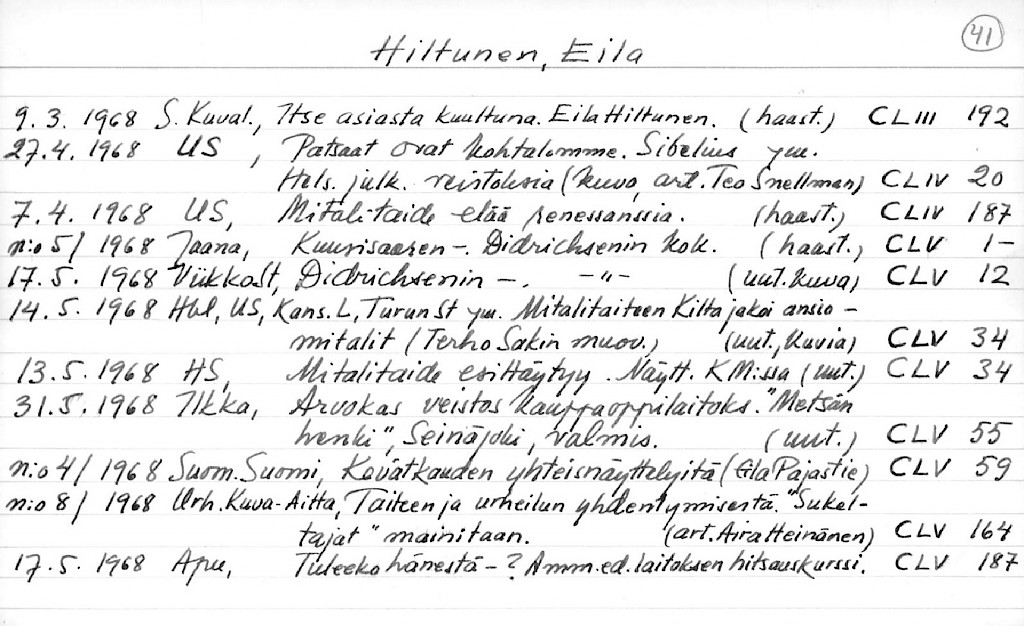 41
Hiltunen, Eila
9.3. 1968 S. Kuval., Itse asiasta kuultuna. Eila Hiltunen. (haast.) CLIII 192
27.4. 1968 US, Patsaat ovat kohtalomme. Sibelius ym.
Hels. julk. veistoksia (kuva, art. Teo Snellman) CLIV 20
7.4. 1968 US, Mitalitaide elää renessanssia. (haast.) CLIV 187
n:o 5/ 1968 Jaana, Kuusisaaren -. Didrichsenin kok. (haast.) CLV 1-
17.5. 1968 Viikkos t, Didrichsenin -. -"- (uut. kuva) CLV 12
14.5. 1968 Hbl, US, Kans.L, Turun St ym. Mitalitaiteen Kilta jakoi ansio-
mitalit (Terho Sakin muov.) (uut., kuvia) CLV 34
13.5. 1968 HS, Mitalitaide esittäytyy. Näytt. KM:ssa (uut.) CLV 34
31.5. 1968 Ilkka, Arvokas veistos kauppaoppilaitoks. "Metsän
henki", Seinäjoki, valmis. (uut.) CLV 55
n:o 4/ 1968 Suom. Suomi, Kevätkauden yhteisnäyttelyitä (Eila Pajastie) CLV 59
n:o 8/ 1968 Urh. Kuva-Aitta, Taiteen ja urheilun yhdentymisestä. "Sukel-
tajat" mainitaan. (art. Aira Heinänen) CLV 164
17.5. 1968 Apu, Tuleeko hänestä -? Amm.ed. laitoksen hitsauskurssi. CLV 187